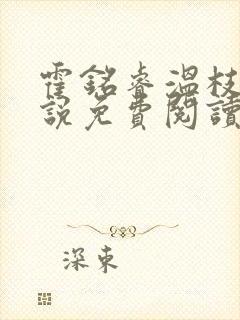 霍銘睿溫枝
說免費閱讀
深東